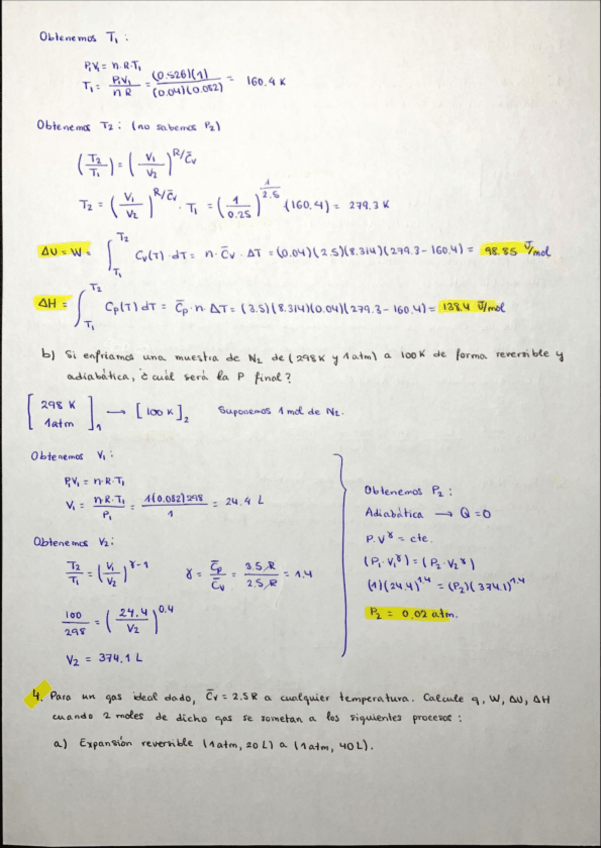 Obtenemos T₁ :
P₁V₁ = n·R·T₁
T₁ = P₁V₁ / n R = (0.526)(1) / (0.04)(0.082) = 160.4 K
Obtenemos T₂ : (no sabemos P₂)
(T₂/T₁) = (V₁/V₂)^(R/C̄v)
T₂ = (V₁/V₂)^(R/C̄v) · T₁ = (1/0.25)^(1/2.5) (160.4) = 279.3 K
ΔU = W = ∫_T₁^T₂ Cv(T) · dT = n · C̄v · ΔT = (0.04)(2.5)(8.314)(279.3 - 160.4) = 98.85 J/mol
ΔH = ∫_T₁^T₂ Cp(T) dT = C̄p · n · ΔT = (3.5)(8.314)(0.04)(279.3 - 160.4) = 138.4 J/mol
b) Si enfriamos una muestra de N₂ de (298K y 1atm) a 100K de forma reversible y
adiabática, ¿cuál será la P final?
[298 K 1atm]₁ → [100 K]₂ Suponemos 1 mol de N₂.
Obtenemos V₁ :
P₁V₁ = n·R·T₁
V₁ = n·R·T₁ / P₁ = 1(0.082)298 / 1 = 24.4 L
Obtenemos V₂ :
T₂/T₁ = (V₁/V₂)^(γ-1) γ = C̄p/C̄v = 3.5 R / 2.5 R = 1.4
100/298 = (24.4/V₂)^0.4
V₂ = 374.1 L
Obtenemos P₂ :
Adiabática → Q = 0
P·V^γ = cte.
(P₁·V₁^γ) = (P₂·V₂^γ)
(1)(24.4)^1.4 = (P₂)(374.1)^1.4
P₂ = 0.02 atm.
4. Para un gas ideal dado, C̄v = 2.5R a cualquier temperatura. Calcule q, W, ΔU, ΔH
cuando 2 moles de dicho gas se sometan a los siguientes procesos :
a) Expansión reversible (1atm, 20L) a (1atm, 40L).